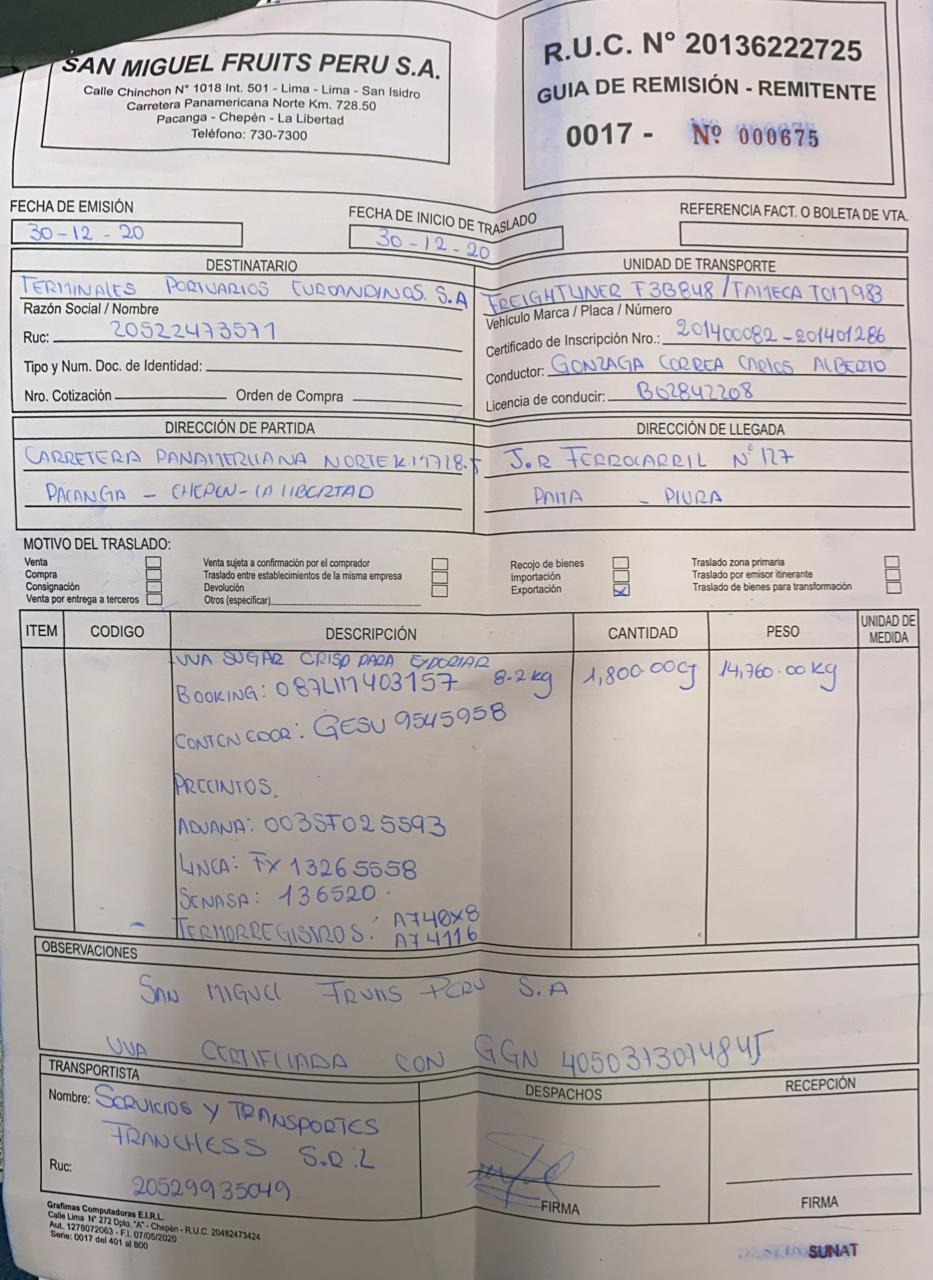 SAN MIGUEL FRUITS PERU S.A.
Calle Chinchon N° 1018 Int. 501 - Lima - Lima - San Isidro
Carretera Panamericana Norte Km. 728.50
Pacanga - Chepén - La Libertad
Teléfono: 730-7300
R.U.C. N° 20136222725
GUIA DE REMISIÓN - REMITENTE
0017 - Nº 000675
FECHA DE EMISIÓN
30-12-20
FECHA DE INICIO DE TRASLADO
30-12-20
REFERENCIA FACT. O BOLETA DE VTA.
DESTINATARIO
TERMINALES PORTUARIOS EUROANDINOS. S.A
Razón Social / Nombre
Ruc: 20522473571
Tipo y Num. Doc. de Identidad:
Nro. Cotización Orden de Compra
UNIDAD DE TRANSPORTE
FREIGHTLINER F3B848/TAMECA T0M983
Vehículo Marca / Placa / Número
Certificado de Inscripción Nro.: 201400082-201401286
Conductor: GONZAGA CORREA CARLOS ALBERTO
Licencia de conducir: B02842208
DIRECCIÓN DE PARTIDA
CARRETERA PANAMERICANA NORTE KM728.5
PACANGA - CHEPEN-LA LIBERTAD
DIRECCIÓN DE LLEGADA
J.R FERROCARRIL N° 127
PAITA - PIURA
MOTIVO DEL TRASLADO:
Venta
Compra
Consignación
Venta por entrega a terceros
Venta sujeta a confirmación por el comprador
Traslado entre establecimientos de la misma empresa
Devolución
Otros (especificar)
Recojo de bienes
Importación
Exportación
Traslado zona primaria
Traslado por emisor itinerante
Traslado de bienes para transformación
ITEM CODIGO DESCRIPCIÓN CANTIDAD PESO UNIDAD DE MEDIDA
UVA SUGAR CRISP PARA EXPORTAR
BOOKING: 087LIM403157 8.2 kg 1,800.00CJ 14,760.00 kg
CONTENEDOR: GESU 9545958
PRECINTOS.
ADUANA: 003ST025593
LINEA: FX 13265558
SENASA: 136520.
TERMORREGISTROS: A740X8
A74116
OBSERVACIONES
SAN MIGUEL FRUITS PERU S.A
UVA CERTIFICADA CON GGN 4050373074845
TRANSPORTISTA
Nombre: SERVICIOS Y TRANSPORTES
FRANCHESS S.R.L
Ruc:
20529935049
DESPACHOS
FIRMA
RECEPCIÓN
FIRMA
Grafimas Computadoras E.I.R.L.
Calle Lima N° 272 Dpto. "A" - Chepén - R.U.C. 20482473424
Aut. 1278072063 - F.I. 07/05/2020
Serie: 0017 del 401 al 800
SUNAT